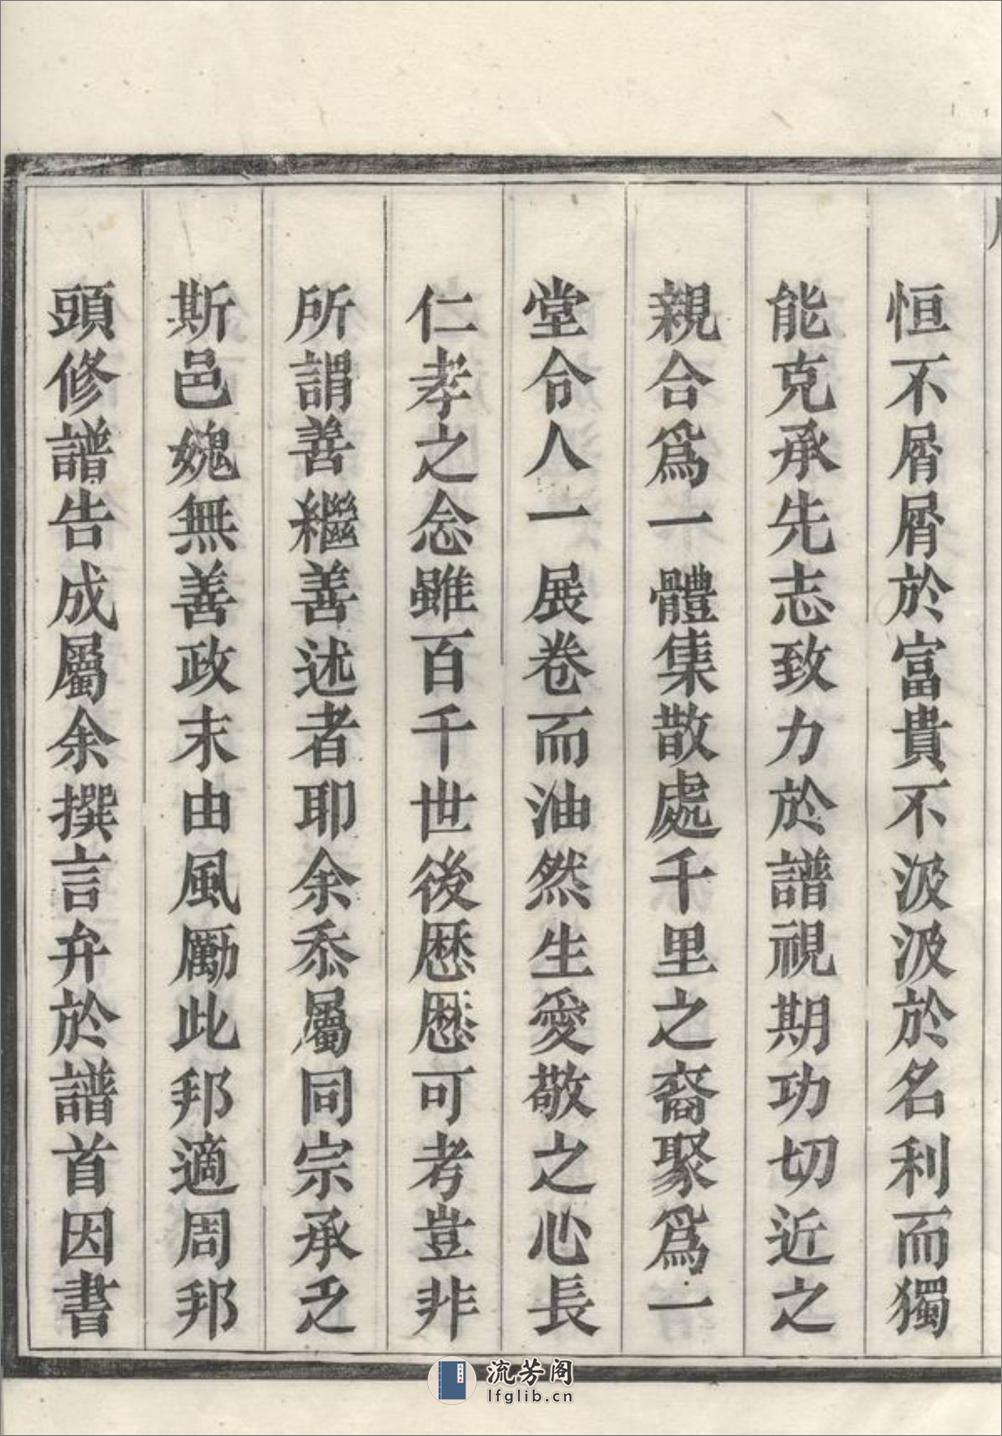 恒不屑屑於富貴不汲汲於名利而獨
能克承先志致力於譜視期功切近之
親合爲一體集散處千里之裔聚爲一
堂令人一展卷而油然生愛敬之心長
仁孝之念雖百千世後歷歷可考豈非
所謂善繼善述者耶余忝屬同宗承乏
斯邑媿無善政末由風勵此邦適周邦
頭修譜告成屬余撰言弁於譜首因書
流芳阁
lfglib.cn